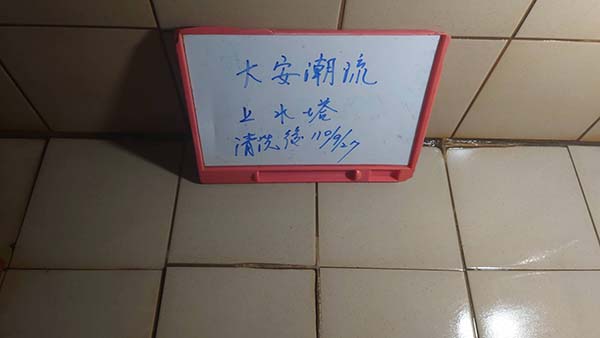 大安潮流
上水塔
清洗後 110/9/27